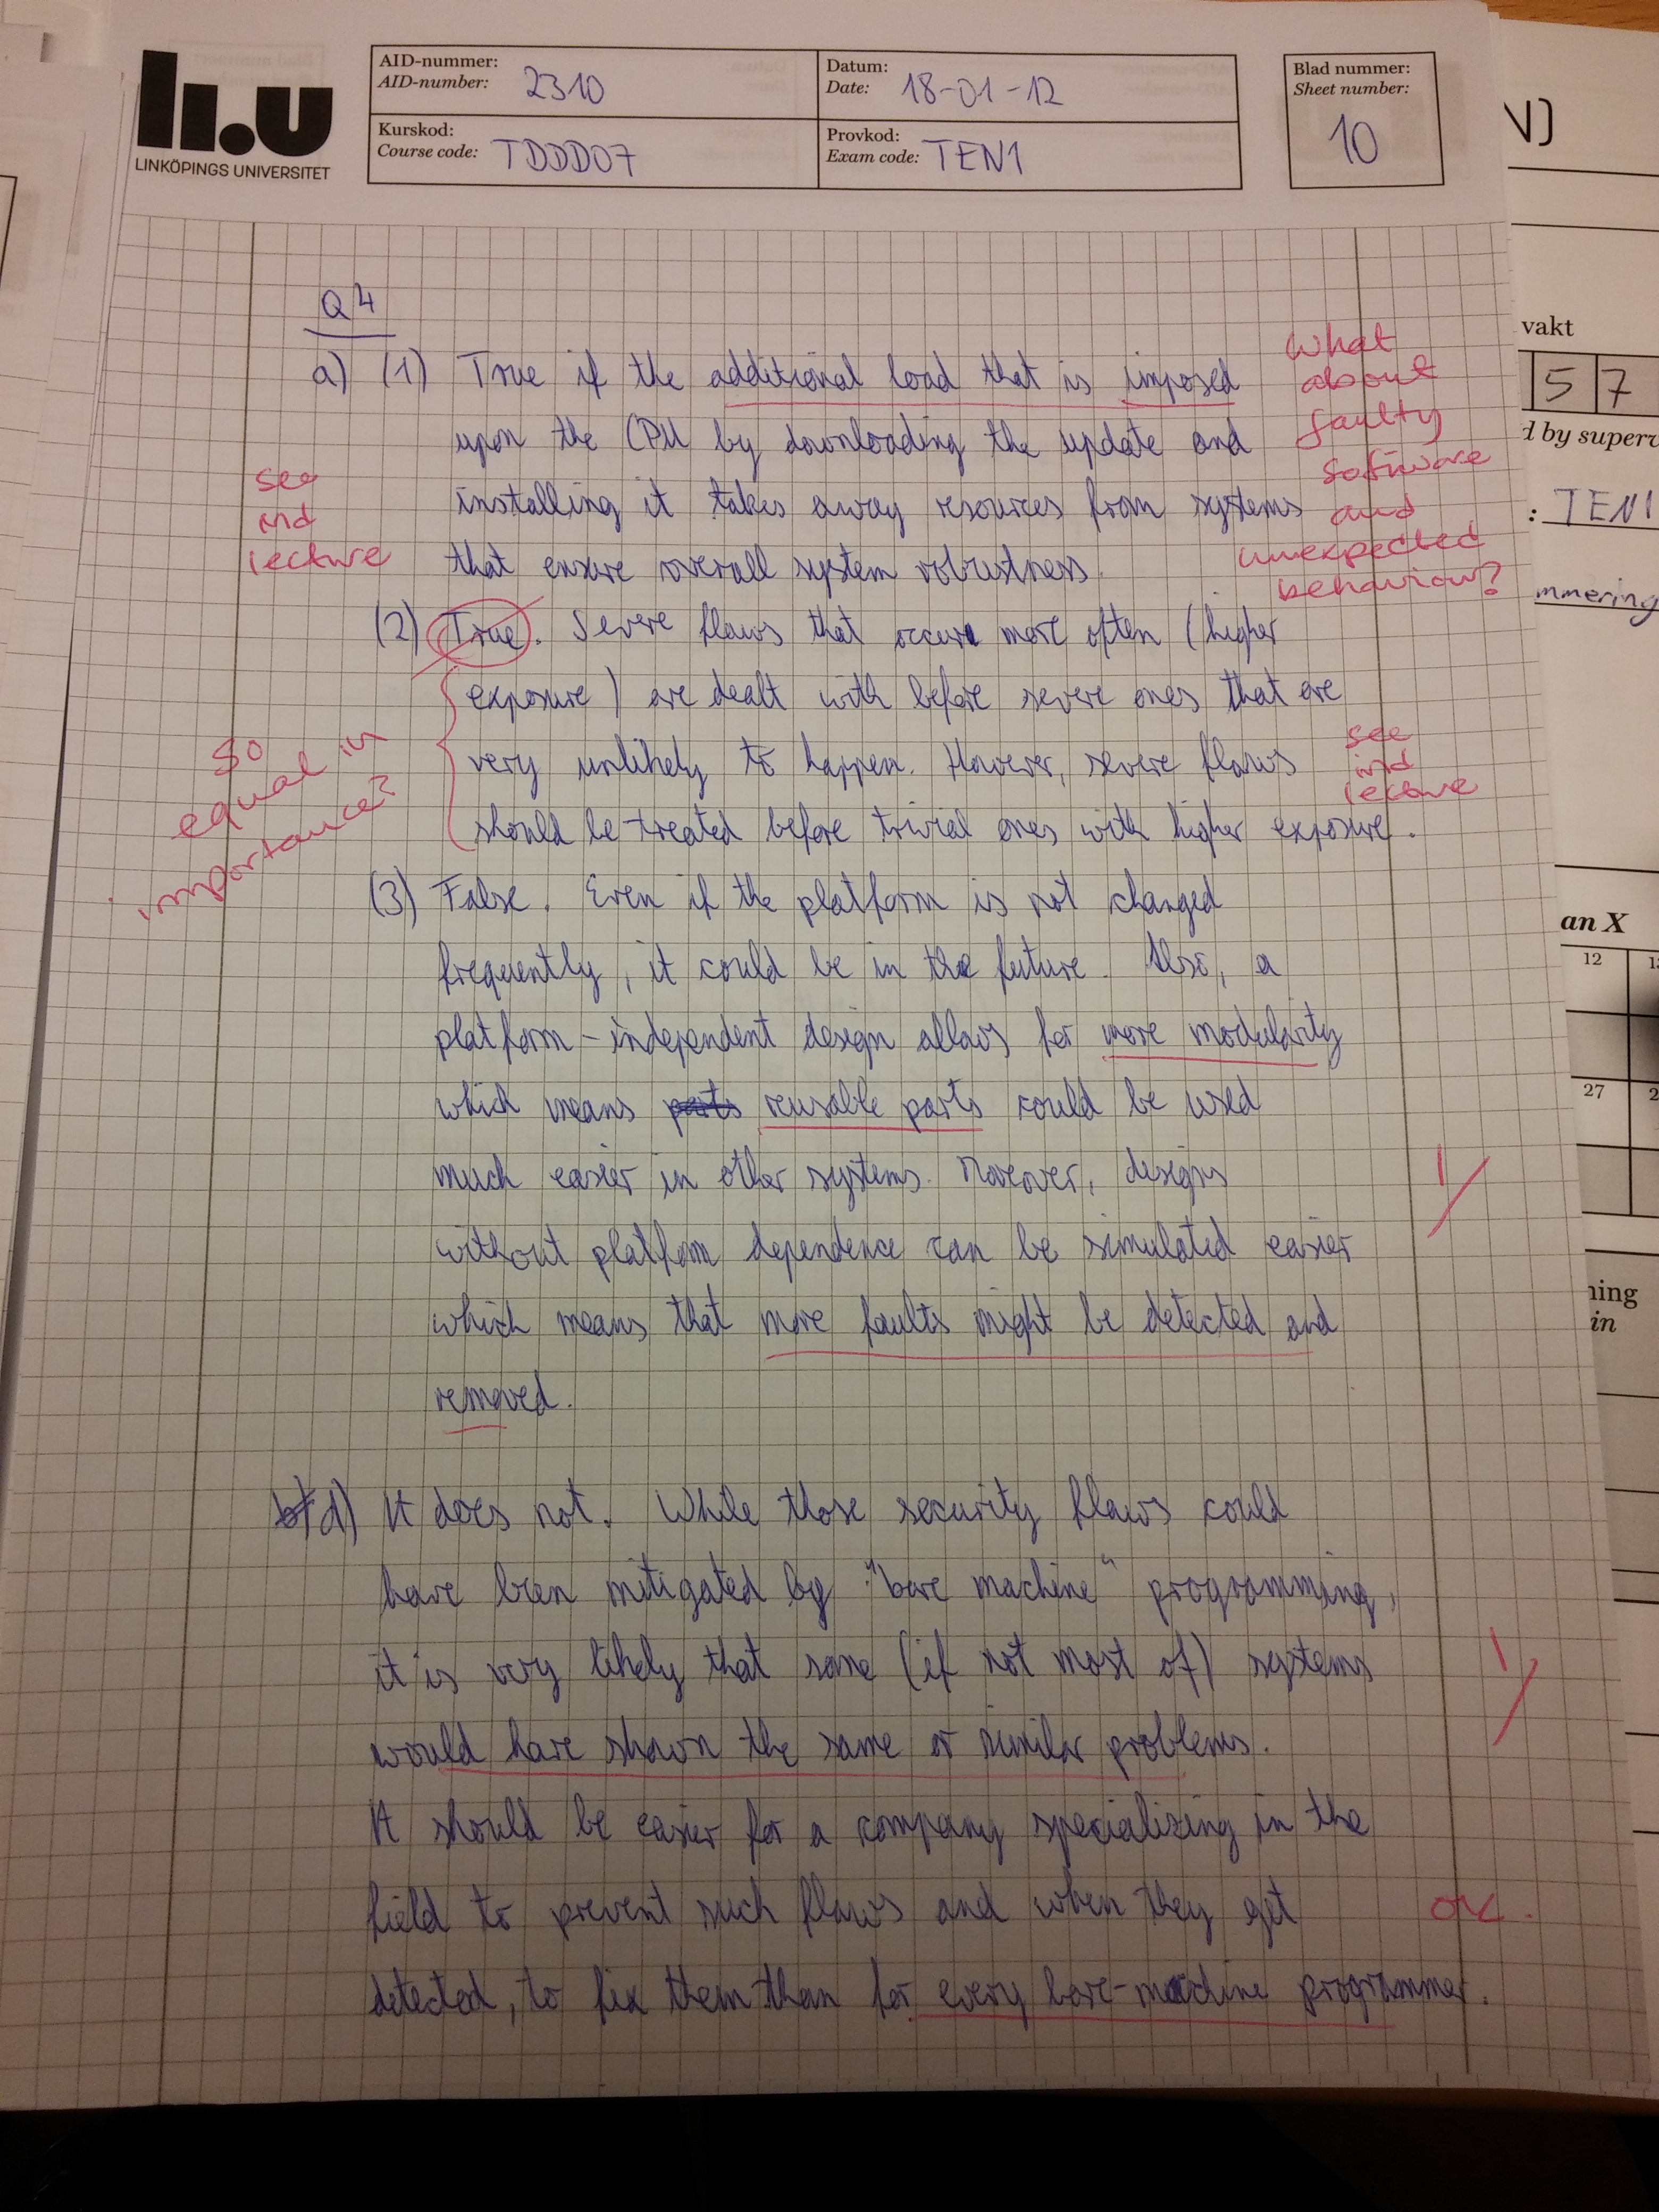 li.u
LINKÖPINGS UNIVERSITET
AID-nummer:
AID-number: 2310
Datum:
Date: 18-01-12
Kurskod:
Course code: TDDD07
Provkod:
Exam code: TEN1
Blad nummer:
Sheet number:
10
Q4
a) (1) True if the additional load that is imposed
upon the CPU by downloading the update and
installing it takes away resources from systems
that ensure overall system robustness.
What
about
faulty
software
and
unexpected
behaviour?
see
ind
lecture
(2) True. Severe flaws that occur more often (higher
exposure) are dealt with before severe ones that are
very unlikely to happen. However, severe flaws
should be treated before trivial ones with higher exposure.
so
equal in
importance?
see
ind
lecture
(3) False. Even if the platform is not changed
frequently, it could be in the future. Also, a
platform-independent design allows for more modularity
which means parts reusable parts could be used
much easier in other systems. Moreover, designs
without platform dependence can be simulated easier
which means that more faults might be detected and
removed.
1/
b) d) It does not. While those security flaws could
have been mitigated by "bare machine" programming,
it is very likely that some (if not most of) systems
would have shown the same or similar problems.
1/
It should be easier for a company specializing in the
field to prevent such flaws and when they get
ok.
detected, to fix them than for every bare-machine programmer.
N)
vakt
5 7
d by superv
: TEN1
mmering
an X
12
27
ning
in